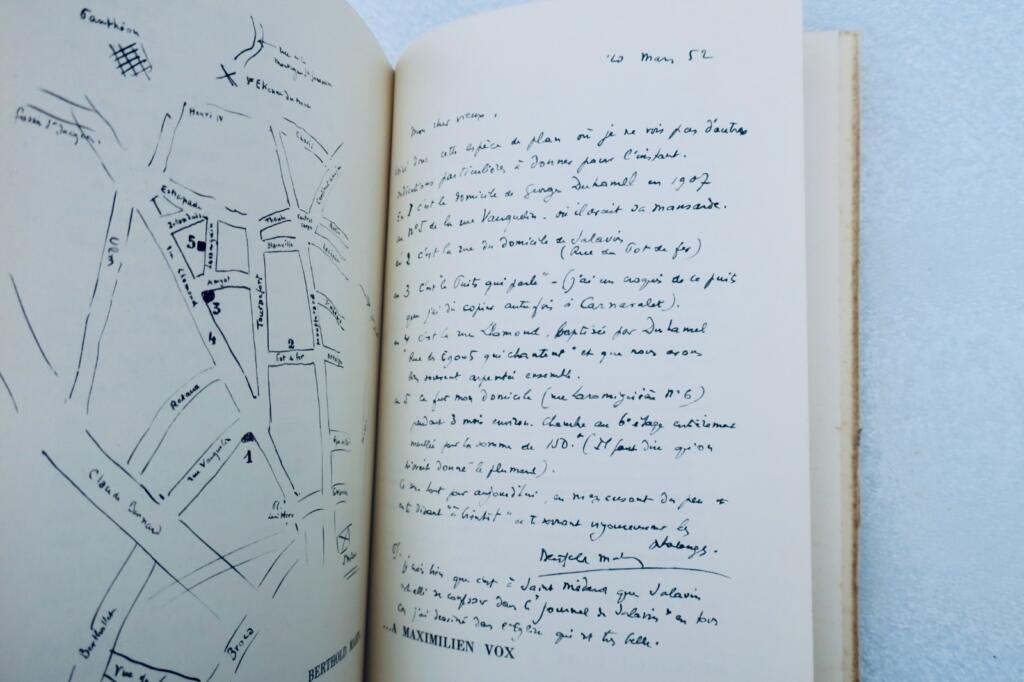 Panthéon
Henri IV
Estrapade
Thouin
Blainville
Ulm
5
Amyot
3
4
Tournefort
2
Pot de fer
Rataud
rue Vauquelin
1
Claude Bernard
Berthollet
Broca
rue de
BERTHOLD
20 Mars 52
Mon cher vieux,
donc cette espèce de plan où je ne vois pas d'autres
indications particulières à donner pour l'instant.
En 1 c'est le domicile de Georges Duhamel en 1907
au N° 5 de la rue Vauquelin. où il avait sa mansarde.
en 2 c'est la rue du domicile de Salavin
(Rue du Pot de fer)
en 3 c'est le "Puits qui parle" - (j'ai un croquis de ce puits
que j'ai dû copier autrefois à Carnavalet).
en 4 c'est la rue Lhomond, baptisée par Duhamel
"Rue des Egouts qui chantent" et que nous avons
souvent arpentée ensemble.
en 5 ce fut mon domicile (rue Laromiguière N° 6)
pendant 3 mois environ. Chambre au 6e étage entièrement
meublée par la somme de 150. (Il faut dire qu'on
m'avait donné le plumard).
Ce sera tout pour aujourd'hui, en m'excusant du peu et
en te disant "à bientôt" et te serrant vigoureusement les
phalanges.
Berthold Mahn
je sais bien que c'est à Saint Médard que Salavin
se confesser dans le "Journal de Salavin" en tous
cas j'ai dessiné dans l'Eglise qui est très belle.
...A MAXIMILIEN VOX